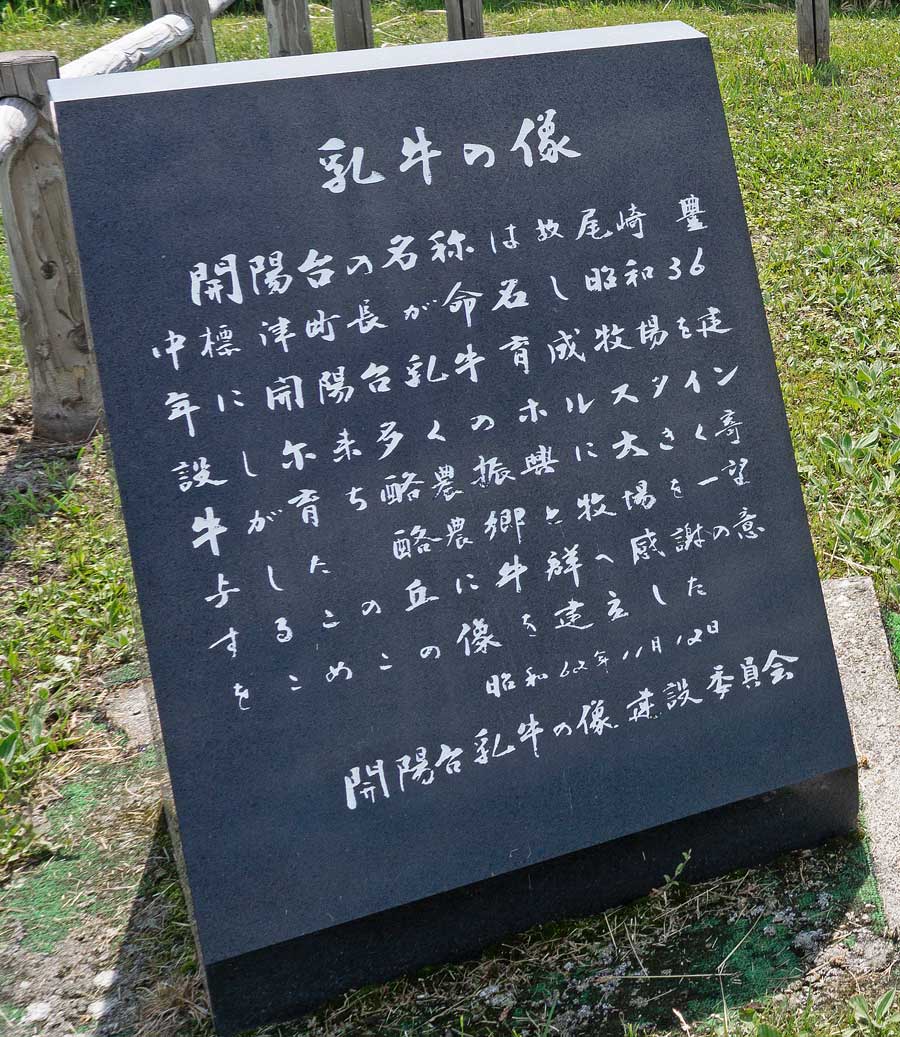 乳牛の像
開陽台の名称は故尾崎 豊
中標津町長が命名し昭和36
年に開陽台乳牛育成牧場を建
設し尓来多くのホルスタイン
牛が育ち酪農振興に大きく寄
与した 酪農郷と牧場を一望
するこの丘に牛群へ感謝の意
をこめこの像を建立した
昭和62年11月12日
開陽台乳牛の像建設委員会